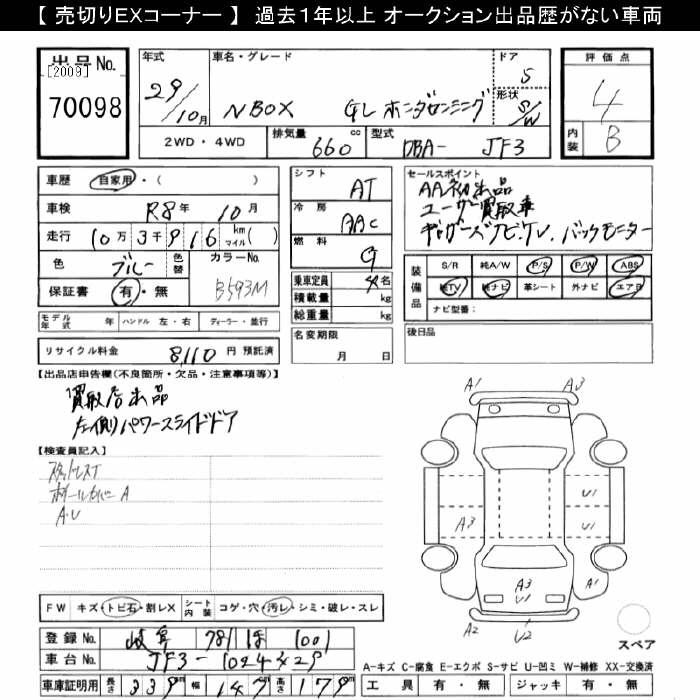 【 売切りEXコーナー 】 過去1年以上 オークション出品歴がない車両
出品No.
[2009]
70098
年式
29/10月
車名・グレード
N BOX GL ホンダセンシング
ドア
5
形状
S/W
評価点
4
内装
B
2WD・4WD
排気量
660 cc
型式
DBA- JF3
車歴 自家用・( )
車検 R8年 10月
走行 10万 3千9 16 km マイル( )
色 ブルー 色替 カラーNo. B593M
保証書 有・無
モデル年式 年 ハンドル 左・右 ディーラー・並行
リサイクル料金 8,110 円 預託済
シフト AT
冷房 AAC
燃料 G
乗車定員 4名
積載量 kg
総重量 kg
名変期限
月 日
セールスポイント
AA初出品
ユーザー買取車
ギャザーズナビTV、バックモニター
装備品
S/R 純A/W P/S P/W ABS
純TV 純ナビ 革シート 外ナビ エアB
ナビ型番:
後日品
【出品店申告欄(不良箇所・欠品・注意事項等)】
買取店出品
左側パワースライドドア
【検査員記入】
ホイールカバー A
A・U
FW キズ・トビ石・割レX シート内装 コゲ・穴・汚レ・シミ・破レ・スレ
登録No. 岐阜 781 ほ 1001
車台No. JF3-1024429
車庫証明用 長さ 339 幅 147 高さ 179
A1
A3
U1
A3
U1
A3
U1
A1
A2
U2
スペア
A-キズ C-腐食 E-エクボ S-サビ U-凹ミ W-補修 XX-交換済
工具 有・無 ジャッキ 有・無